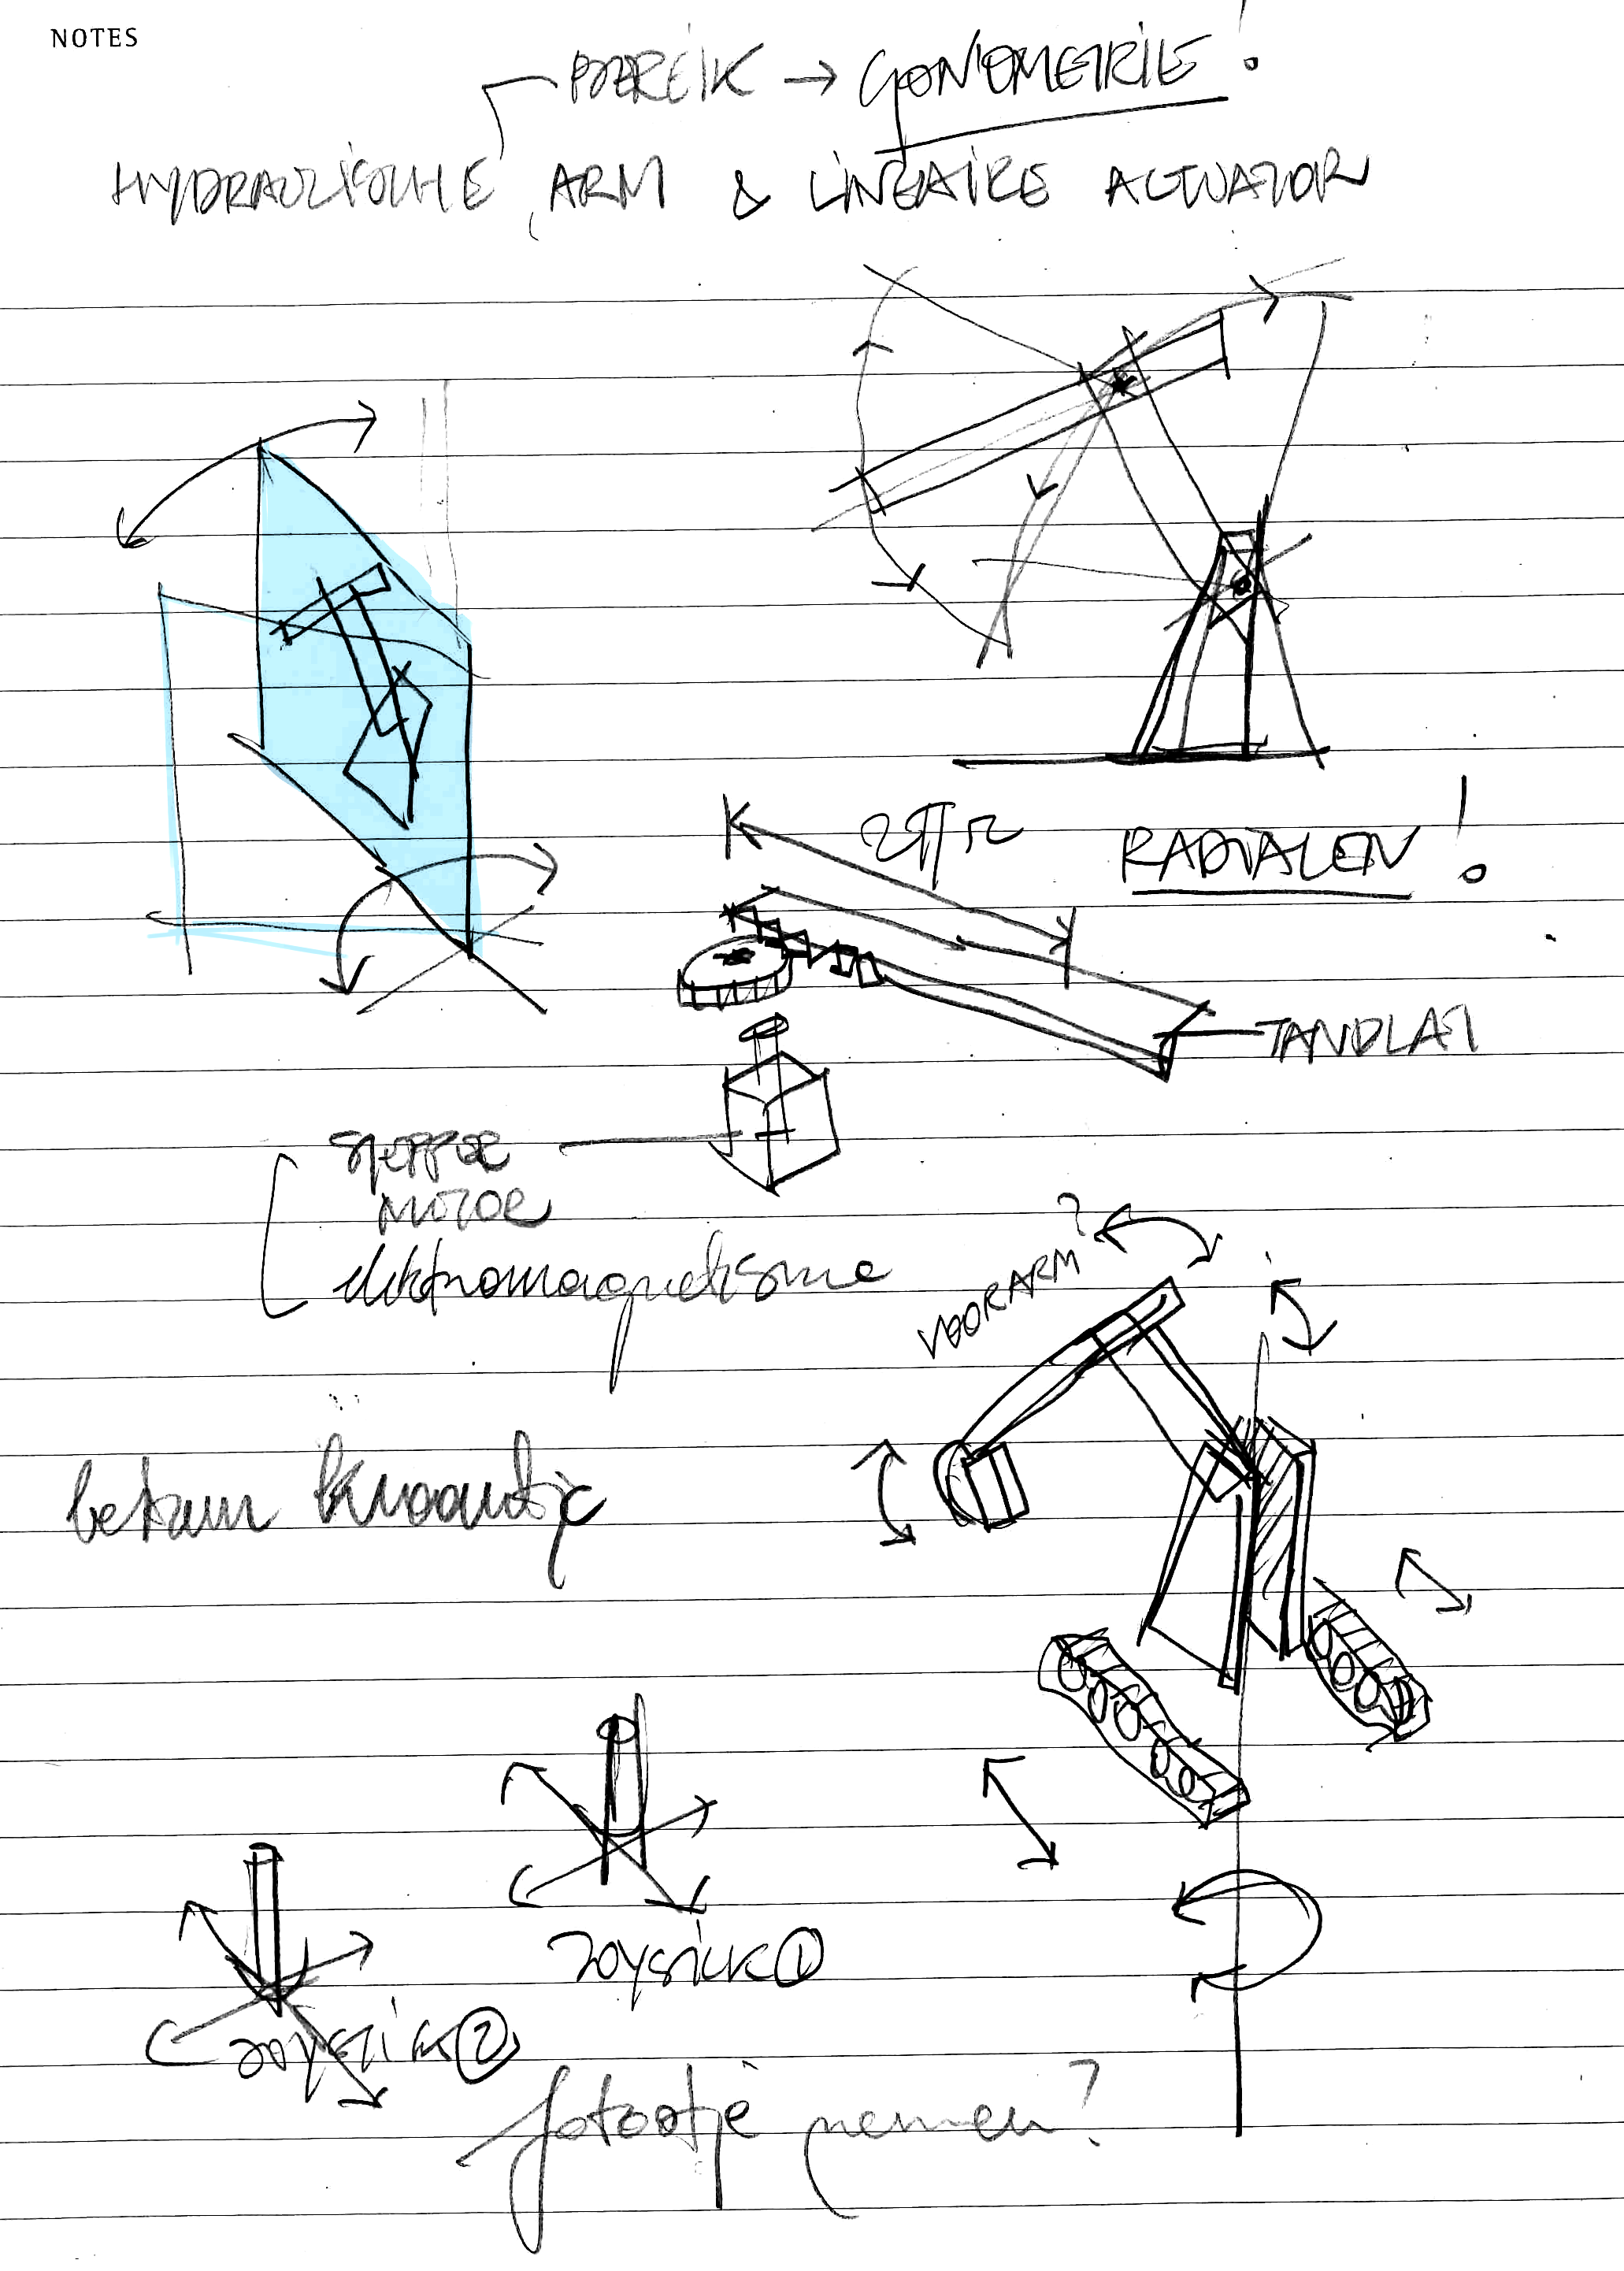 NOTES
BEREIK → GONIOMETRIE!
HYDRAULISCHE ARM & LINEAIRE ACTUATOR
2πr
RADIALEN!
TANDLAT
STEPPER
MOTOR
elektromagnetisme
VOORARM?
JOYSTICK ①
JOYSTICK ②
fotootje nemen?